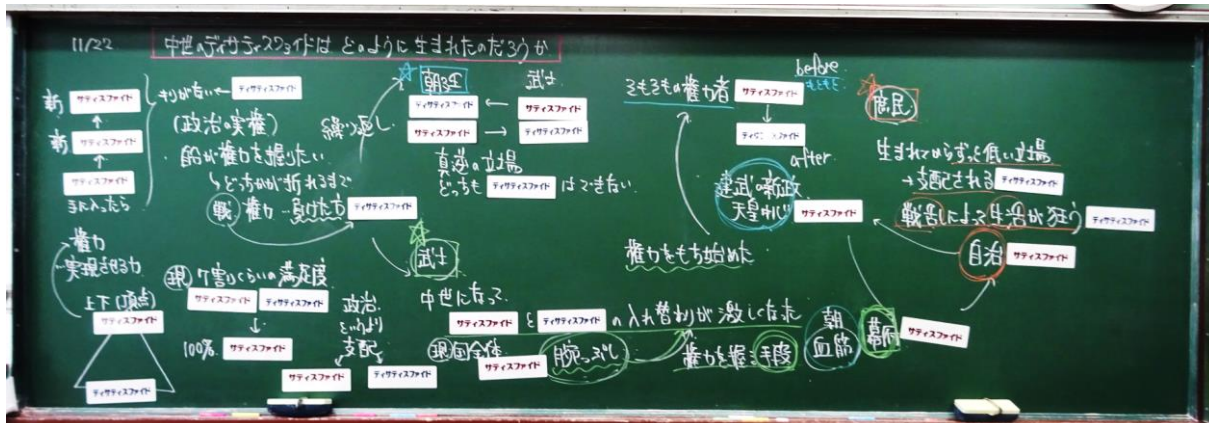 11/22
中世のディサティスファイドは どのように生まれたのだろうか
新 サティスファイド
新 サティスファイド
サティスファイド
手に入ったら
キリがない ディサティスファイド
(政治の実権)
・自らが権力を握りたい
どっちかが折れるまで
戦 権力…負けた方 ディサティスファイド
繰り返し
朝廷
武士
ディサティスファイド ← サティスファイド
サティスファイド → ディサティスファイド
真逆の立場
どっちも ディサティスファイド はできない
武士
権力
実現させる力
上下(頂点)
サティスファイド
ディサティスファイド
現 7割りくらいの満足度
サティスファイド ディサティスファイド
100% サティスファイド
政治
というより
支配
サティスファイド ディサティスファイド
中世になって
サティスファイド と ディサティスファイド の入れ替わりが激しくなった
現 国全体
サティスファイド
腕っぷし
権力を握る手段
朝
血筋
幕府
サティスファイド
そもそもの権力者 サティスファイド
before
もともと
ディサティスファイド
after
建武の新政
天皇
サティスファイド
権力をもち始めた
庶民
生まれてからずっと低い立場
→支配される ディサティスファイド
戦によって生活が狂う ディサティスファイド
自治 サティスファイド